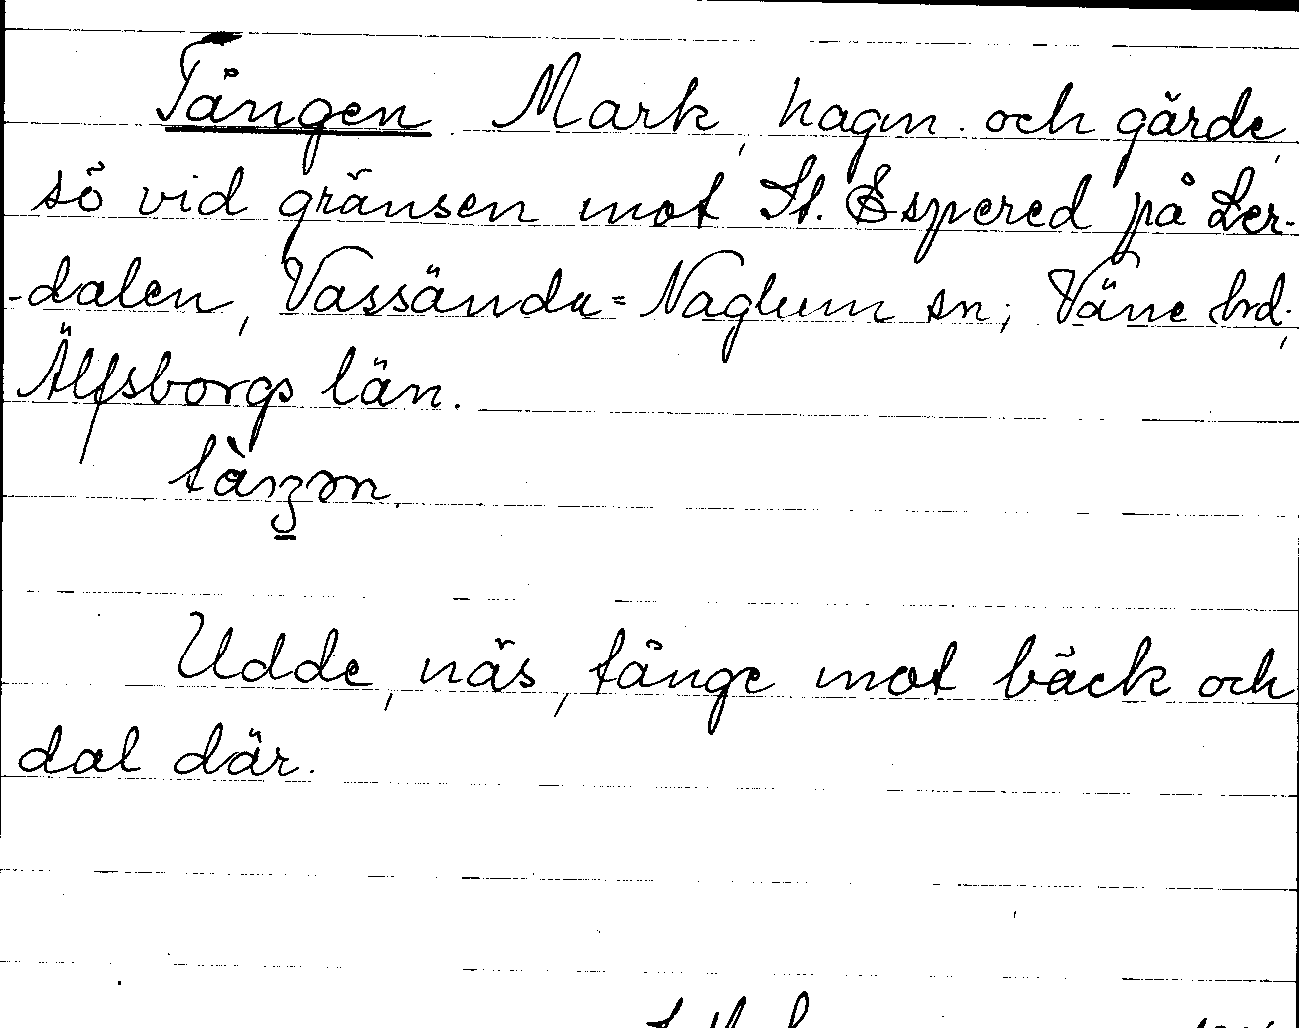 Tången Mark, hagm. och gärde,
sö vid gränsen mot St. Espered på Ler-
-dalen, Vassända=Naglum sn; Väne hrd;
Älfsborgs län.
Udde, näs, tånge mot bäck och
dal där.